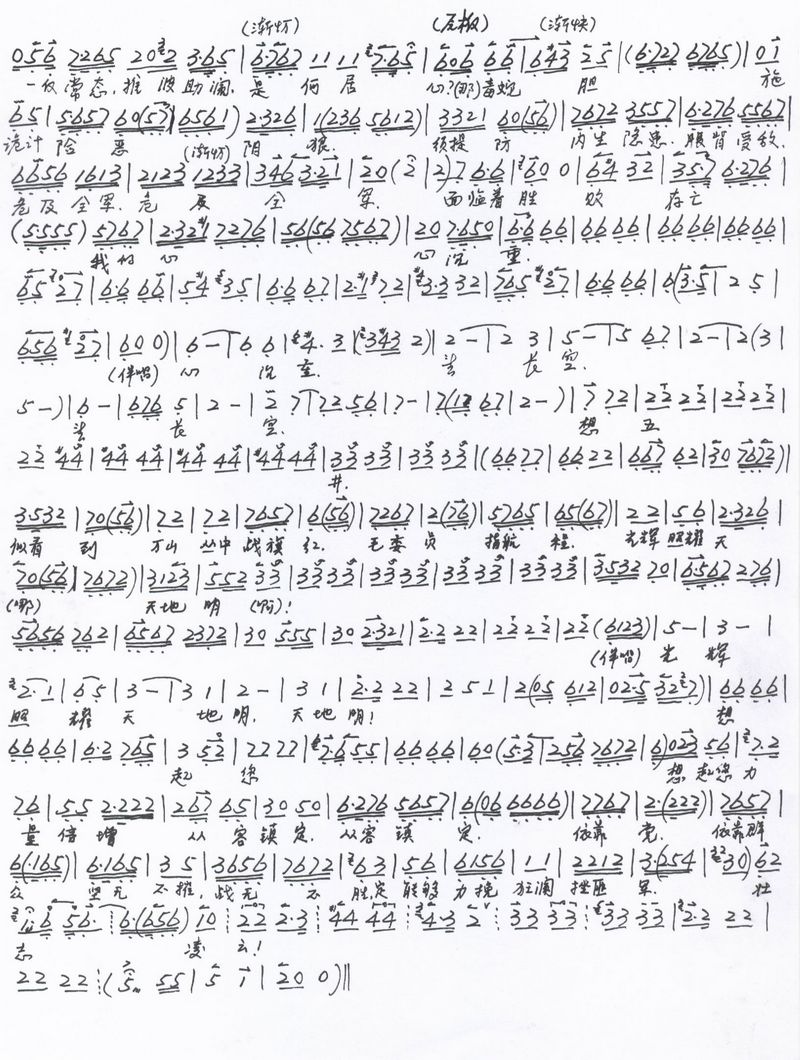 (渐忉) (尼板) (渐快)
0 5 6 7 2 6 5 2 0 2 3·6 5 | 6·7 6 7 1 1 1 1 7·6 5 | 6 0 6 6 6 | 6 4 3 2 5 | (6·7 2 2 6 7 6 5) | 0 1
一 常态,推波助澜,是何居心?(那)毒蛇胆 施
6 5 | 5 6 5 7 6 0 (5 7) | 6 5 6 1) 2·3 2 6 | 1 (2 3 6 5 6 1 2) | 3 3 2 1 6 0 (5 6) | 7 6 7 2 3 5 5 7 | 6·2 7 6 5 5 6 7 |
诡计险恶 阴狠 须提防 内生隐患,腹背受敌,
(渐忉)
6 6 5 6 1 6 1 3 | 2 1 2 3 1 2 3 3 | 3 4 6 3·2 1 | 2 0 (2 | 2) 7 6·6 | 6 0 0 | 6 4 3 2 | 3 5·7 6·2 7 6 |
危及全军,危及全军 面临着胜败存亡
(5 5 5 5) 5 7 6 7 | 2·3 2 1 7 2 7 6 | 5 6 (5 6 7 5 6 7) | 2 0 7·6 5 0 | 6·6 6 6 | 6 6 6 6 | 6 6 6 6 | 6 6 6 6 |
我的心 心沉重
6 5 2 7 | 6·6 6 6 | 5 4 3 5 | 6·6 6 7 | 2·1 7 2 | 3·3 3 2 | 7 6 5 2 7 | 6·6 6 6 | 6 (3·5 | 2 5 |
6 5 6 2 7 | 6 0 0) | 6 – | 6 6 | 4· 3 | (3 4 3 2) | 2 – | 2 3 | 5 – | 5 6 7 | 2 – | 2 (3 |
(伴唱) 心沉重 长空
5 –) | 6 – | 6 7 6 5 | 2 – | 2 7 | 7 2 5 6 | 7 – | 7 (1 2 6 7 | 2 –) | 7 7 2 | 2 2 2 2 | 2 2 2 2 |
长空 想五
2 2 4 4 | 4 4 4 4 | 4 4 4 4 | 4 4 4 4 | 3 3 3 3 | 3 3 3 3 | (6 6 7 7 | 6 6 2 2 | 6 6 7 6 2 | 3 0 7 6 7 2) |
井.
3 5 3 2 | 7 0 (5 6) | 7 2 | 7 2 | 7 6 5 7 | 6 (5 6) | 7 2 6 7 | 2 (7 6) | 5 7 6 5 | 6 5 (6 7) | 2 2 | 5 6 | 2·3 2 6 |
似看到 万山丛中战旗红. 毛委员指航程. 光辉照耀天
7 0 (5 6) | 7 6 7 2) | 3 1 2 3 | 5 5 2 3 3 | 3 3 3 3 | 3 3 3 3 | 3 3 3 3 | 3 3 3 3 | 3 5 3 2 7 0 | 6 5 6 7 2 7 6 |
(哪) 天地明(啊)!
5 6 5 6 7 6 2 | 6 5 6 7 2 3 7 2 | 3 0 5 5 5 | 3 0 2·3 2 1 | 2·2 2 2 | 2 2 2 2 | 2 2 (6 1 2 3) | 5 – | 3 – |
(伴唱) 光辉
2· 1 | 6 5 | 3 – | 3 1 | 2 – | 3 1 | 2·2 2 2 | 2 5 1 | 2 (0 5 6 1 2 | 0 2·5 3 2 7) | 6 6 6 6 |
照耀天地明,天地明! 想
6 6 6 6 | 6·2 7 6 5 | 3 5 2 | 7 7 7 7 | 7·6 5 5 | 6 6 6 6 | 6 0 (5 3 | 2 5 6 7 6 7 2 | 6) 0 2 3 5 6 | 7·2
起您 想起您力
7 6 | 5 5 2·2 2 2 | 2 6 7 6 5 | 3 0 5 0 | 6·2 7 6 5 6 5 7 | 6 (0 6 6 6 6 6) | 7 7 6 7 | 2·(2 2 2) | 7 6 5 7 |
量倍增 从容镇定,从容镇定. 依靠党,依靠群
6 (·1 6 5) | 6·1 6 5 | 3 5 | 3 6 5 6 | 7 6 7 2 | 6 3 | 5 6 | 6 1 5 6 | 1 1 | 2 2 1 2 | 3·(2 5 4 | 3 0) 6 2
众坚无不摧,战无不胜,定能够力挽狂澜挫匪军. 壮
6 5 6· 6·(6 5 6) 1 0 2 2 2·3 4 4 4 4 4·3 2 3 3 3 3 3 3 3 3 | 2·2 2 2 |
志凌云!
2 2 2 2 (5 5 5 | 5 1 | 2 0 0) ‖